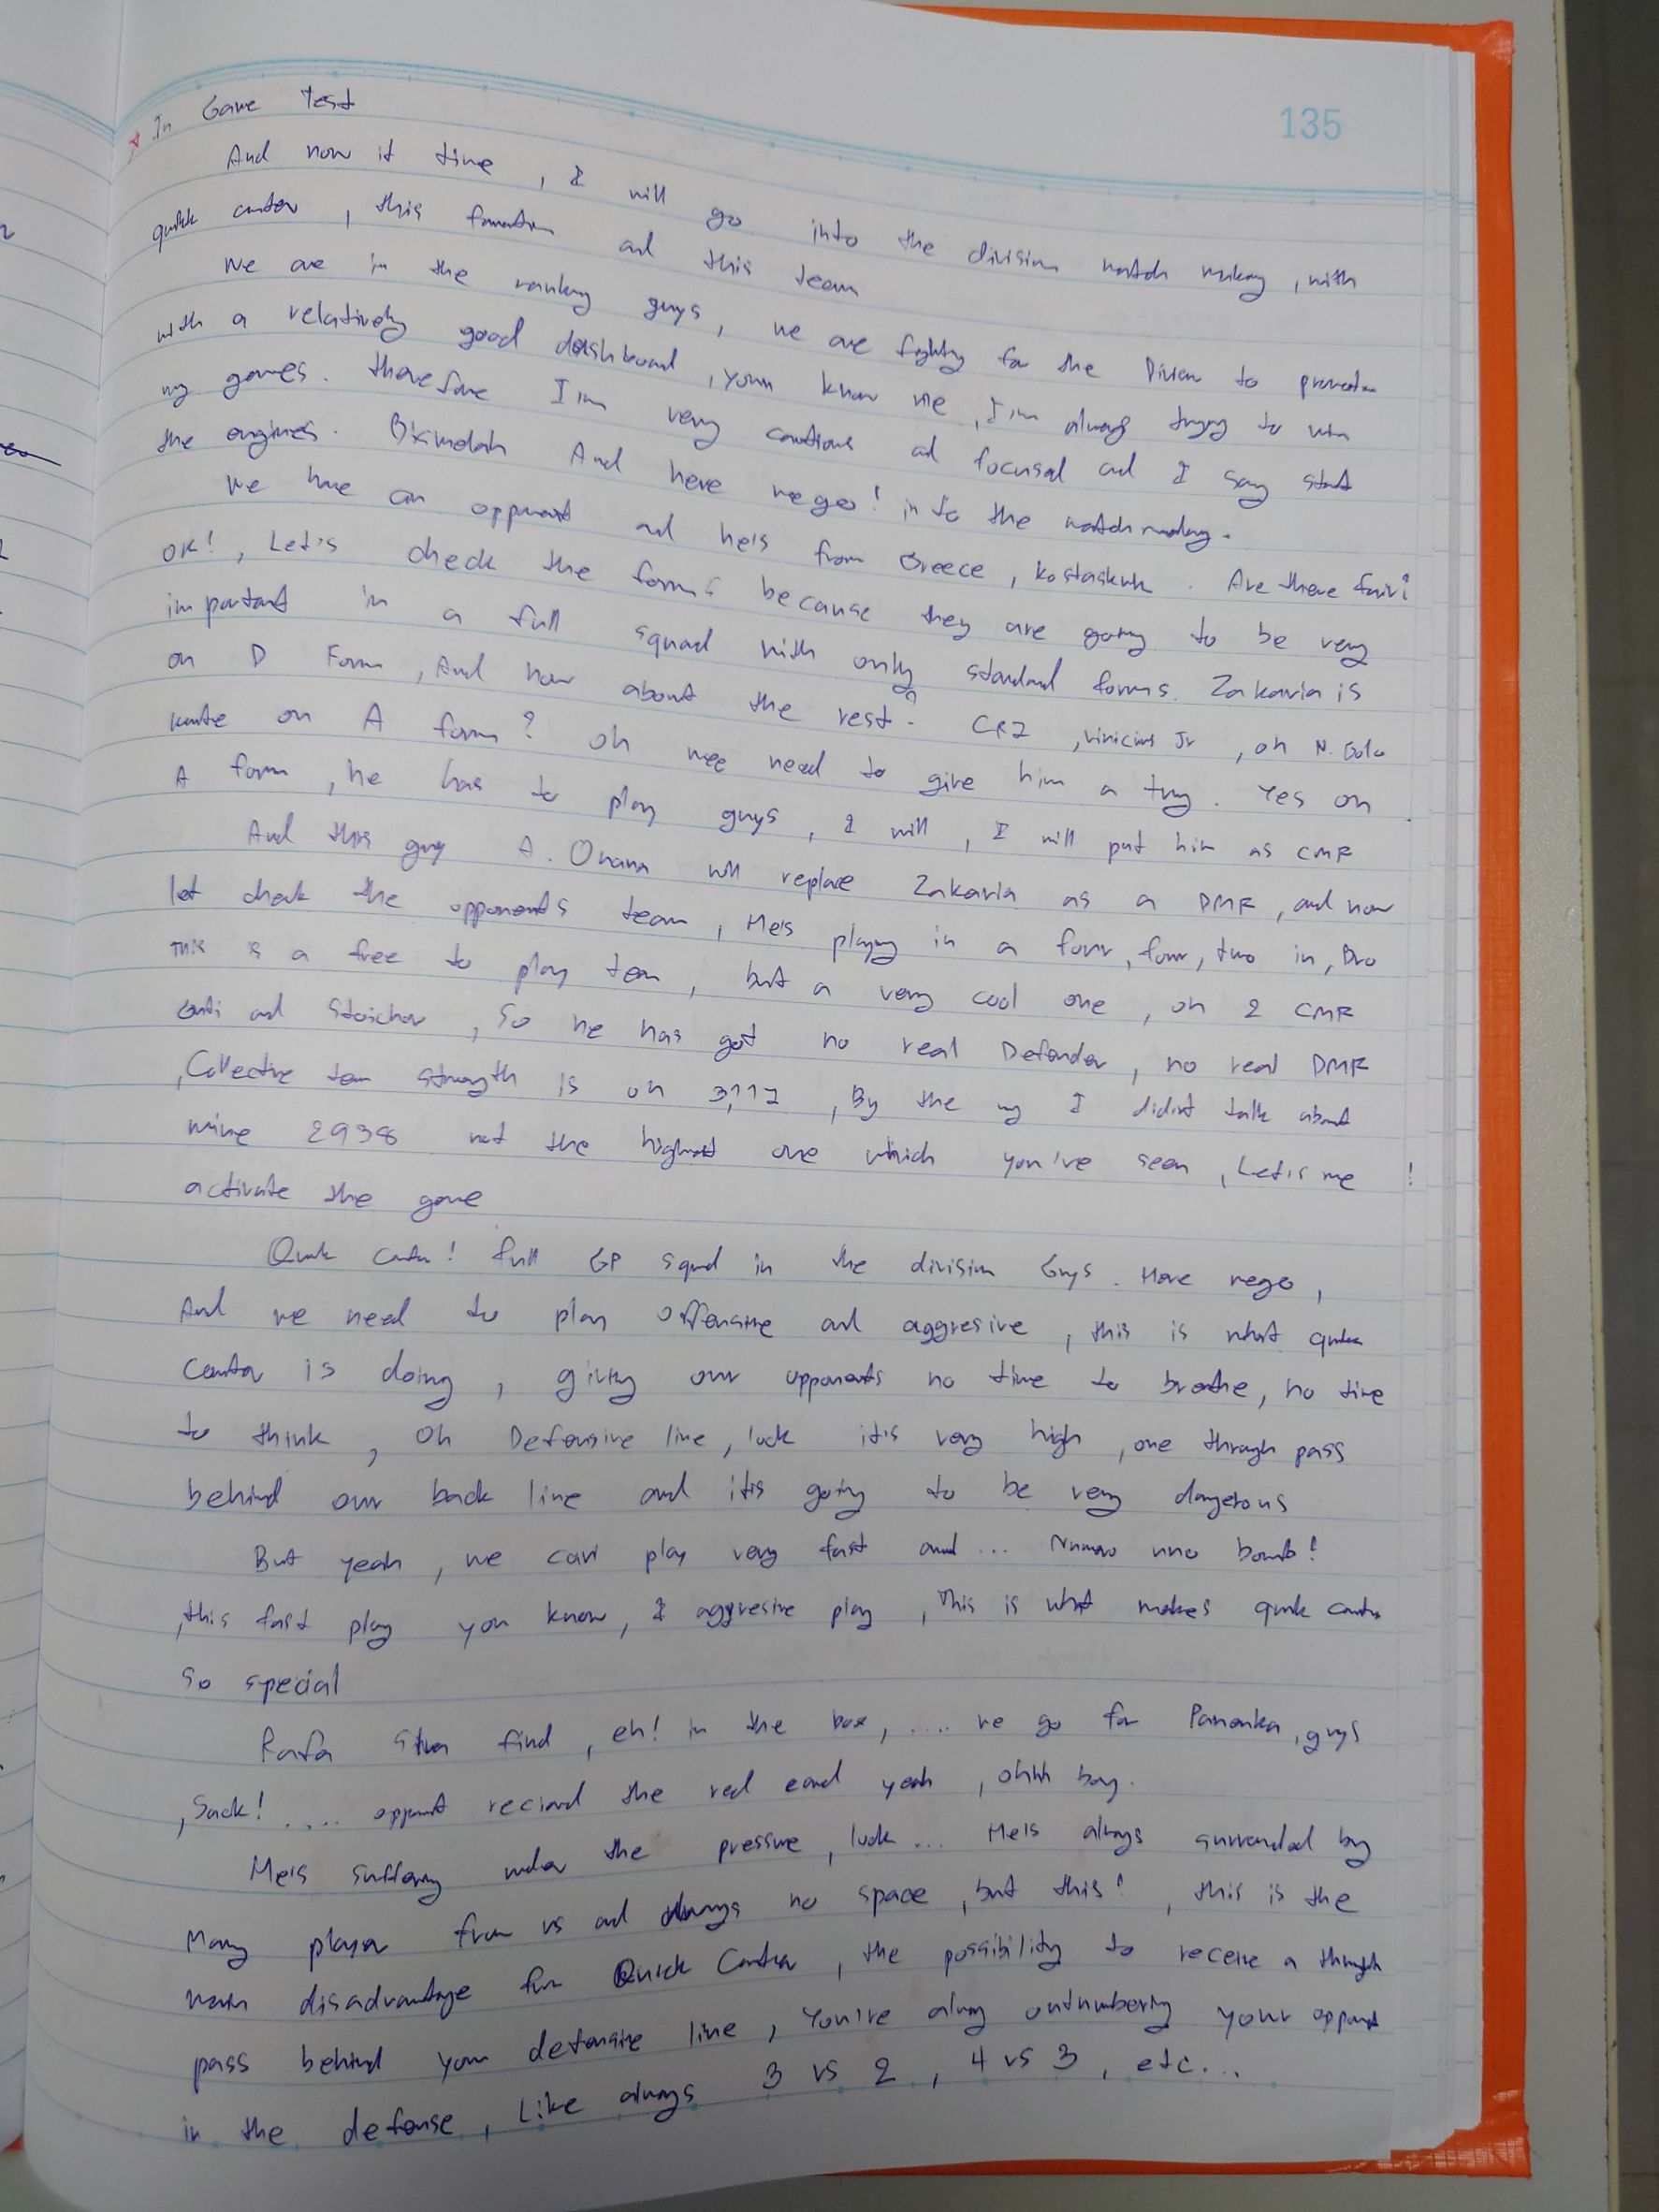 135
In Game Test
And now it time , I will go into the division match making , with
quick counter , this formation and this team
We are in the ranking guys , we are fighting for the Division to promotion
with a relatively good dashboard , your know me , I'm always trying to win
my games . therefore I'm very cautious and focused and I say start
the engines . And here wego ! into the matchmaking .
We have an opponent and he's from Greece , kostaskuk . Are there fair ?
OK ! , Let's check the forms because they are going to be very
important in a full squad with only standard forms . Zakaria is
on D Form , And how about the rest ? CR7 , Vinicius Jr , oh N. Golo
kante on A form ? oh wee need to give him a try . Yes on
A form , he has to play guys , I will , I will put him as CMF
And this guy A. Onana will replace Zakaria as a DMF , and now
let check the opponents team , He's playing in a four , four , two in , Bro
This is a free to play team , but a very cool one , oh 2 CMF
and Stoichkov , So he has got no real Defender , no real DMF
, Collective team strength is on 3,117 , By the way I didn't talk about
mine 2938 not the highest one which you've seen , Let's me !
activate the game
Quick Counter ! full GP squad in the division Guys . Here wego ,
And we need to play offensive and aggresive , this is what quick
Counter is doing , giving our opponents no time to breathe , no time
to think , Oh Defensive line , look it's very high , one through pass
behind our back line and it's going to be very dangerous
But yeah , we can play very fast and ... Numero uno bomb !
, this fast play you know , & aggresive play , This is what makes quick counter
so special
Rafa Silva find , eh ! in the box , .... we go for Panenka , guys
, Suck ! .... oppont recierd the red card yeah , ohhh boy .
He's suffering under the pressure , look ... He's always surrounded by
Many player from us and always no space , but this ! , this is the
main disadvantage for Quick Counter , the possibility to receive a through
pass behind your defensive line , You're always outnumbering your opponent
in the defense , Like always 3 vs 2 , 4 vs 3 , etc ...